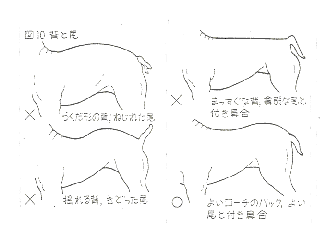 図10 背と尾
× らくだ形の背,ねじれた尾
× まっすぐな背,貧弱な尾と
付き具合
× 揺れる背,きどった尾
○ よいコーチのバック,よい
尾と付き具合